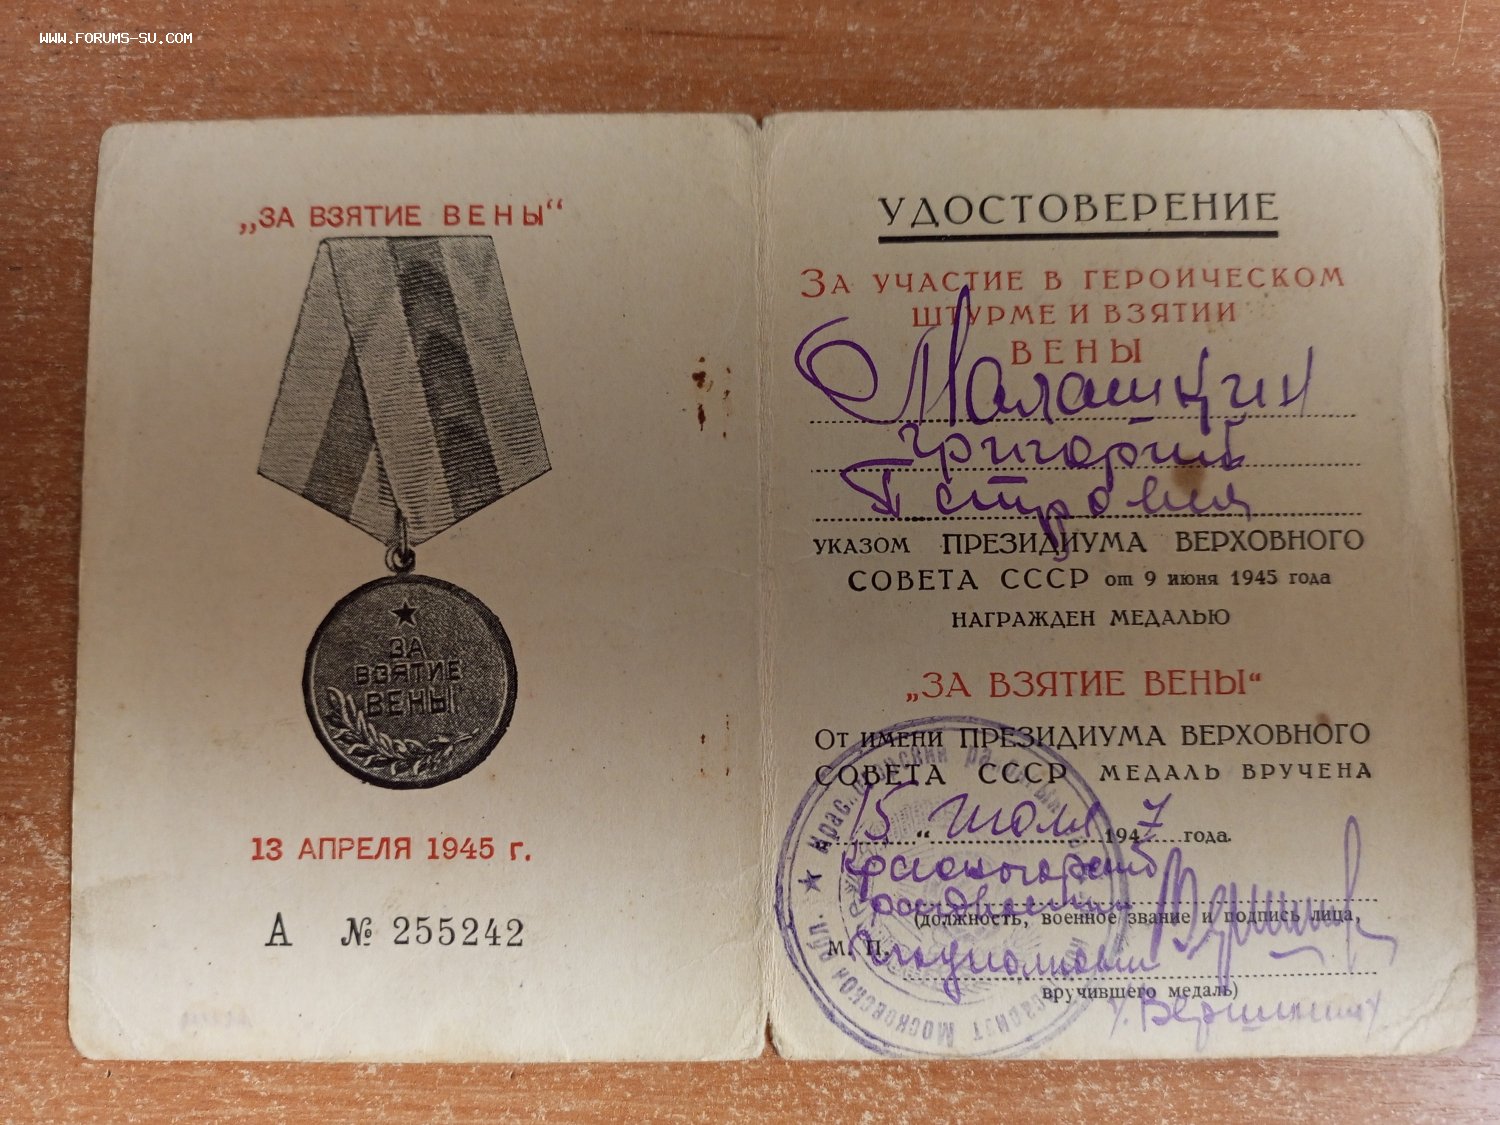 WWW.FORUMS-SU.COM
„ЗА ВЗЯТИЕ ВЕНЫ“
ЗА
ВЗЯТИЕ
ВЕНЫ
13 АПРЕЛЯ 1945 г.
А № 255242
УДОСТОВЕРЕНИЕ
ЗА УЧАСТИЕ В ГЕРОИЧЕСКОМ
ШТУРМЕ И ВЗЯТИИ
ВЕНЫ
Малашкин
Григорий
Петрович
УКАЗОМ ПРЕЗИДИУМА ВЕРХОВНОГО
СОВЕТА СССР от 9 июня 1945 года
НАГРАЖДЕН МЕДАЛЬЮ
„ЗА ВЗЯТИЕ ВЕНЫ“
ОТ ИМЕНИ ПРЕЗИДИУМА ВЕРХОВНОГО
СОВЕТА СССР МЕДАЛЬ ВРУЧЕНА
15 “ июля 1947 года.
(должность, военное звание и подпись лица,
М. П.
вручившего медаль)